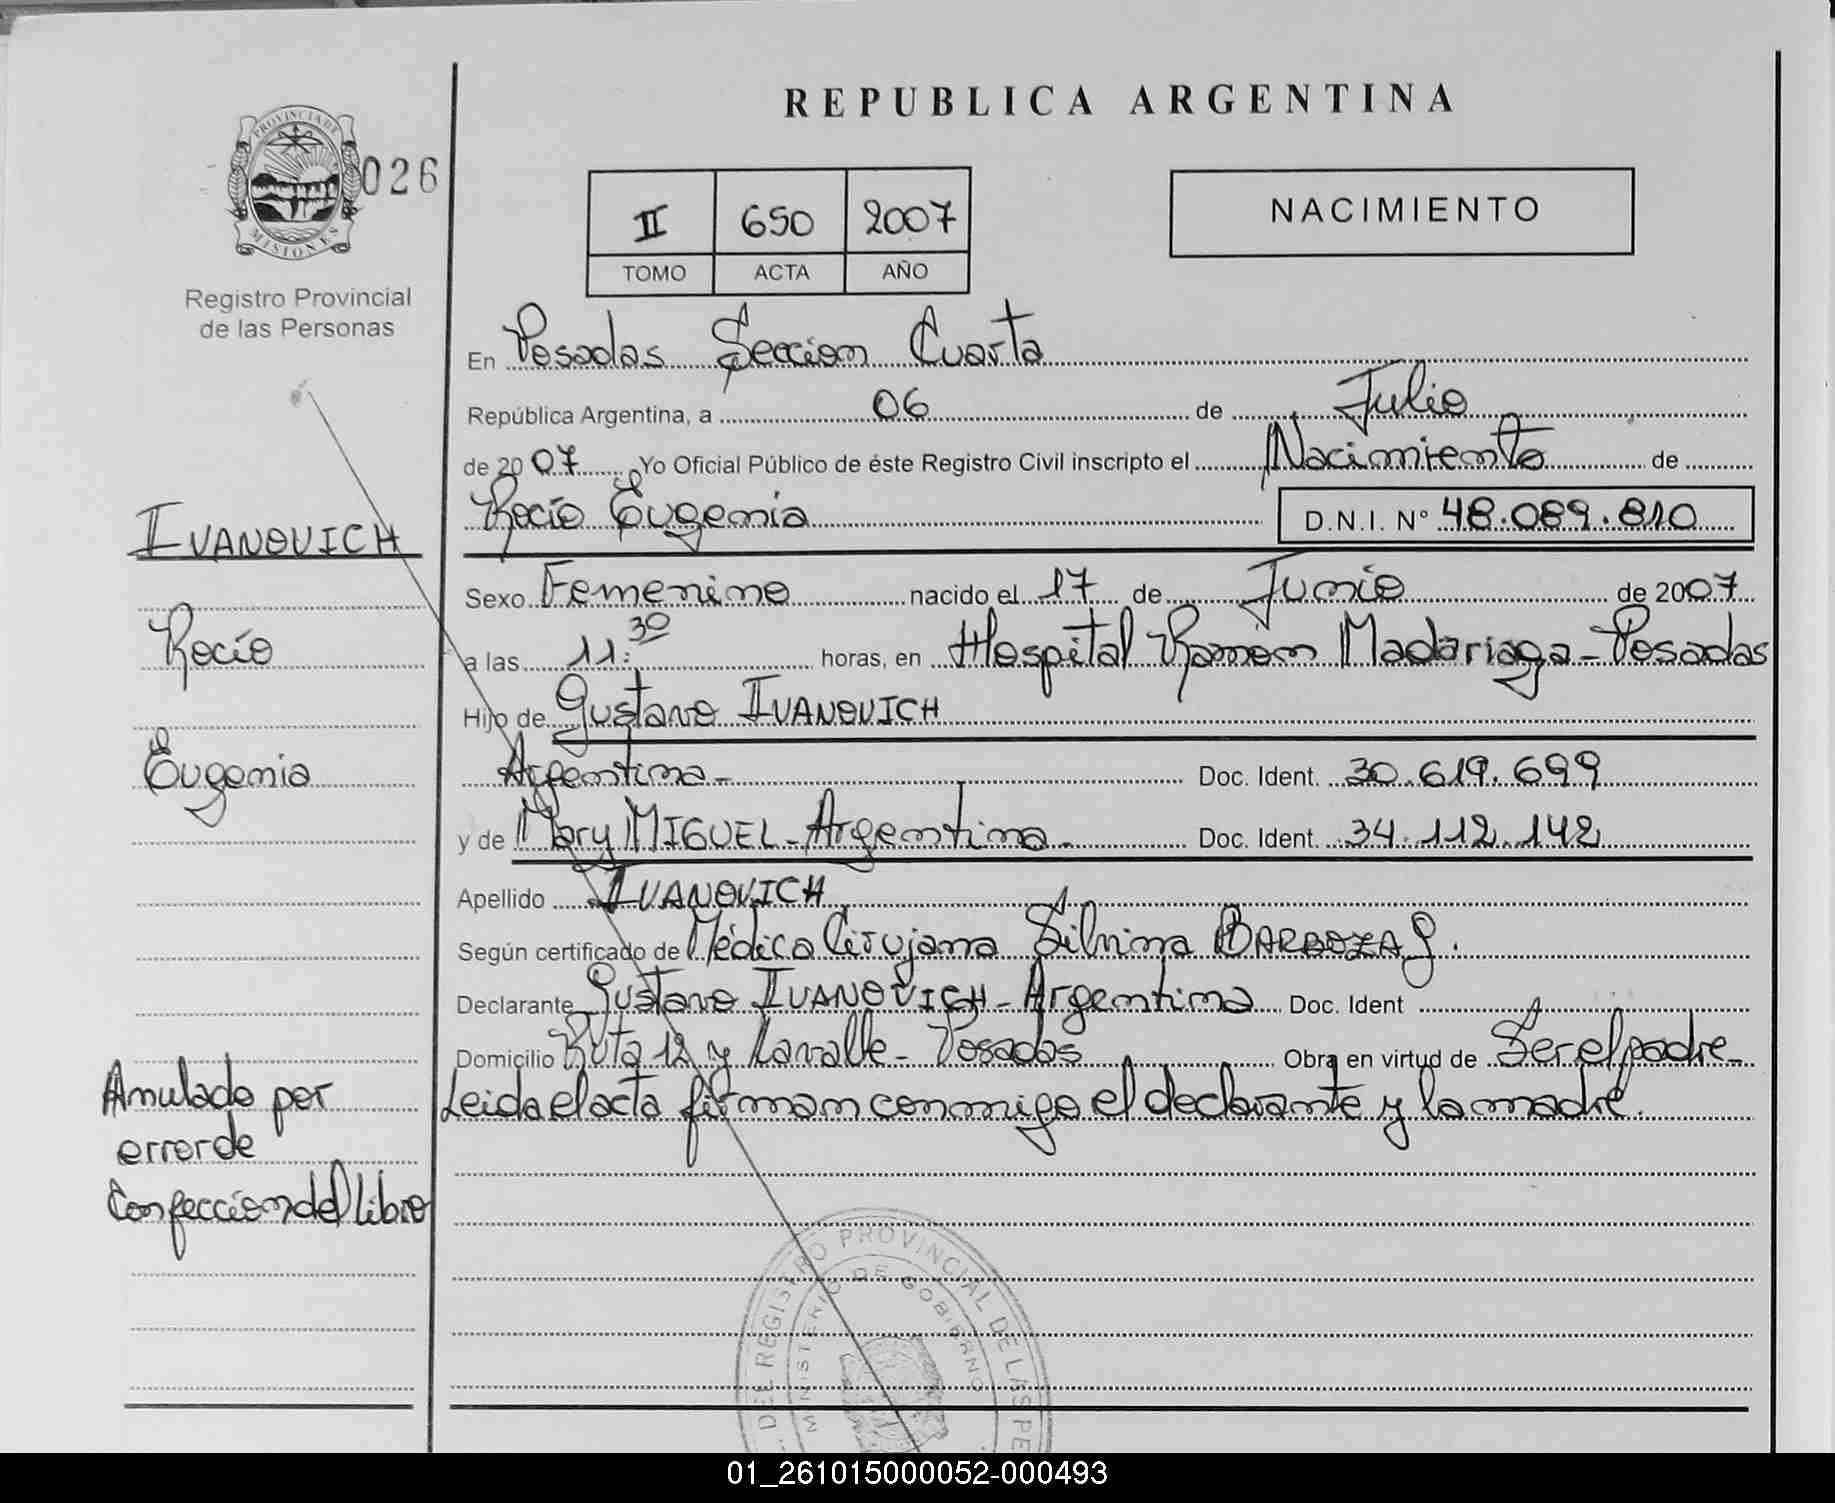 REPUBLICA ARGENTINA
PROVINCIA DE
MISIONES
026
Registro Provincial
de las Personas
II 650 2007
TOMO ACTA AÑO
NACIMIENTO
En Posadas Seccion Cuarta
República Argentina, a 06 de Julio
de 2007 Yo Oficial Público de éste Registro Civil inscripto el Nacimiento de
Rocío Eugenia D.N.I. Nº 48.089.810
IVANOVICH
Rocío
Eugenia
Sexo Femenino nacido el 17 de Junio de 2007
a las 11:30 horas, en Hospital Ramon Madariaga - Posadas
Hijo de Gustavo IVANOVICH
Argentina - Doc. Ident. 30.619.699
y de Mary MIGUEL - Argentina - Doc. Ident. 34.112.142
Apellido IVANOVICH
Según certificado de Médica Cirujana Silvina BARBOZA G.
Declarante Gustavo IVANOVICH - Argentina Doc. Ident
Domicilio Ruta 12 y Lavalle - Posadas Obra en virtud de Ser el padre -
Leida el acta firman conmigo el declarante y la madre.
Anulado por
error de
Confeccion del libro
DEL REGISTRO PROVINCIAL DE LAS PE
MINISTERIO DE GOBIERNO
01_261015000052-000493